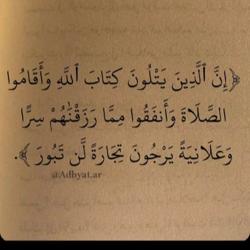 ﴿إِنَّ ٱلَّذِينَ يَتْلُونَ كِتَابَ ٱللَّهِ وَأَقَامُوا
الصَّلَاةَ وَأَنفَقُوا مِمَّا رَزَقْنَٰهُمْ سِرًّا
وَعَلَانِيَةً يَرْجُونَ تِجَارَةً لَّن تَبُورَ ﴾.
@Adbyat.ar